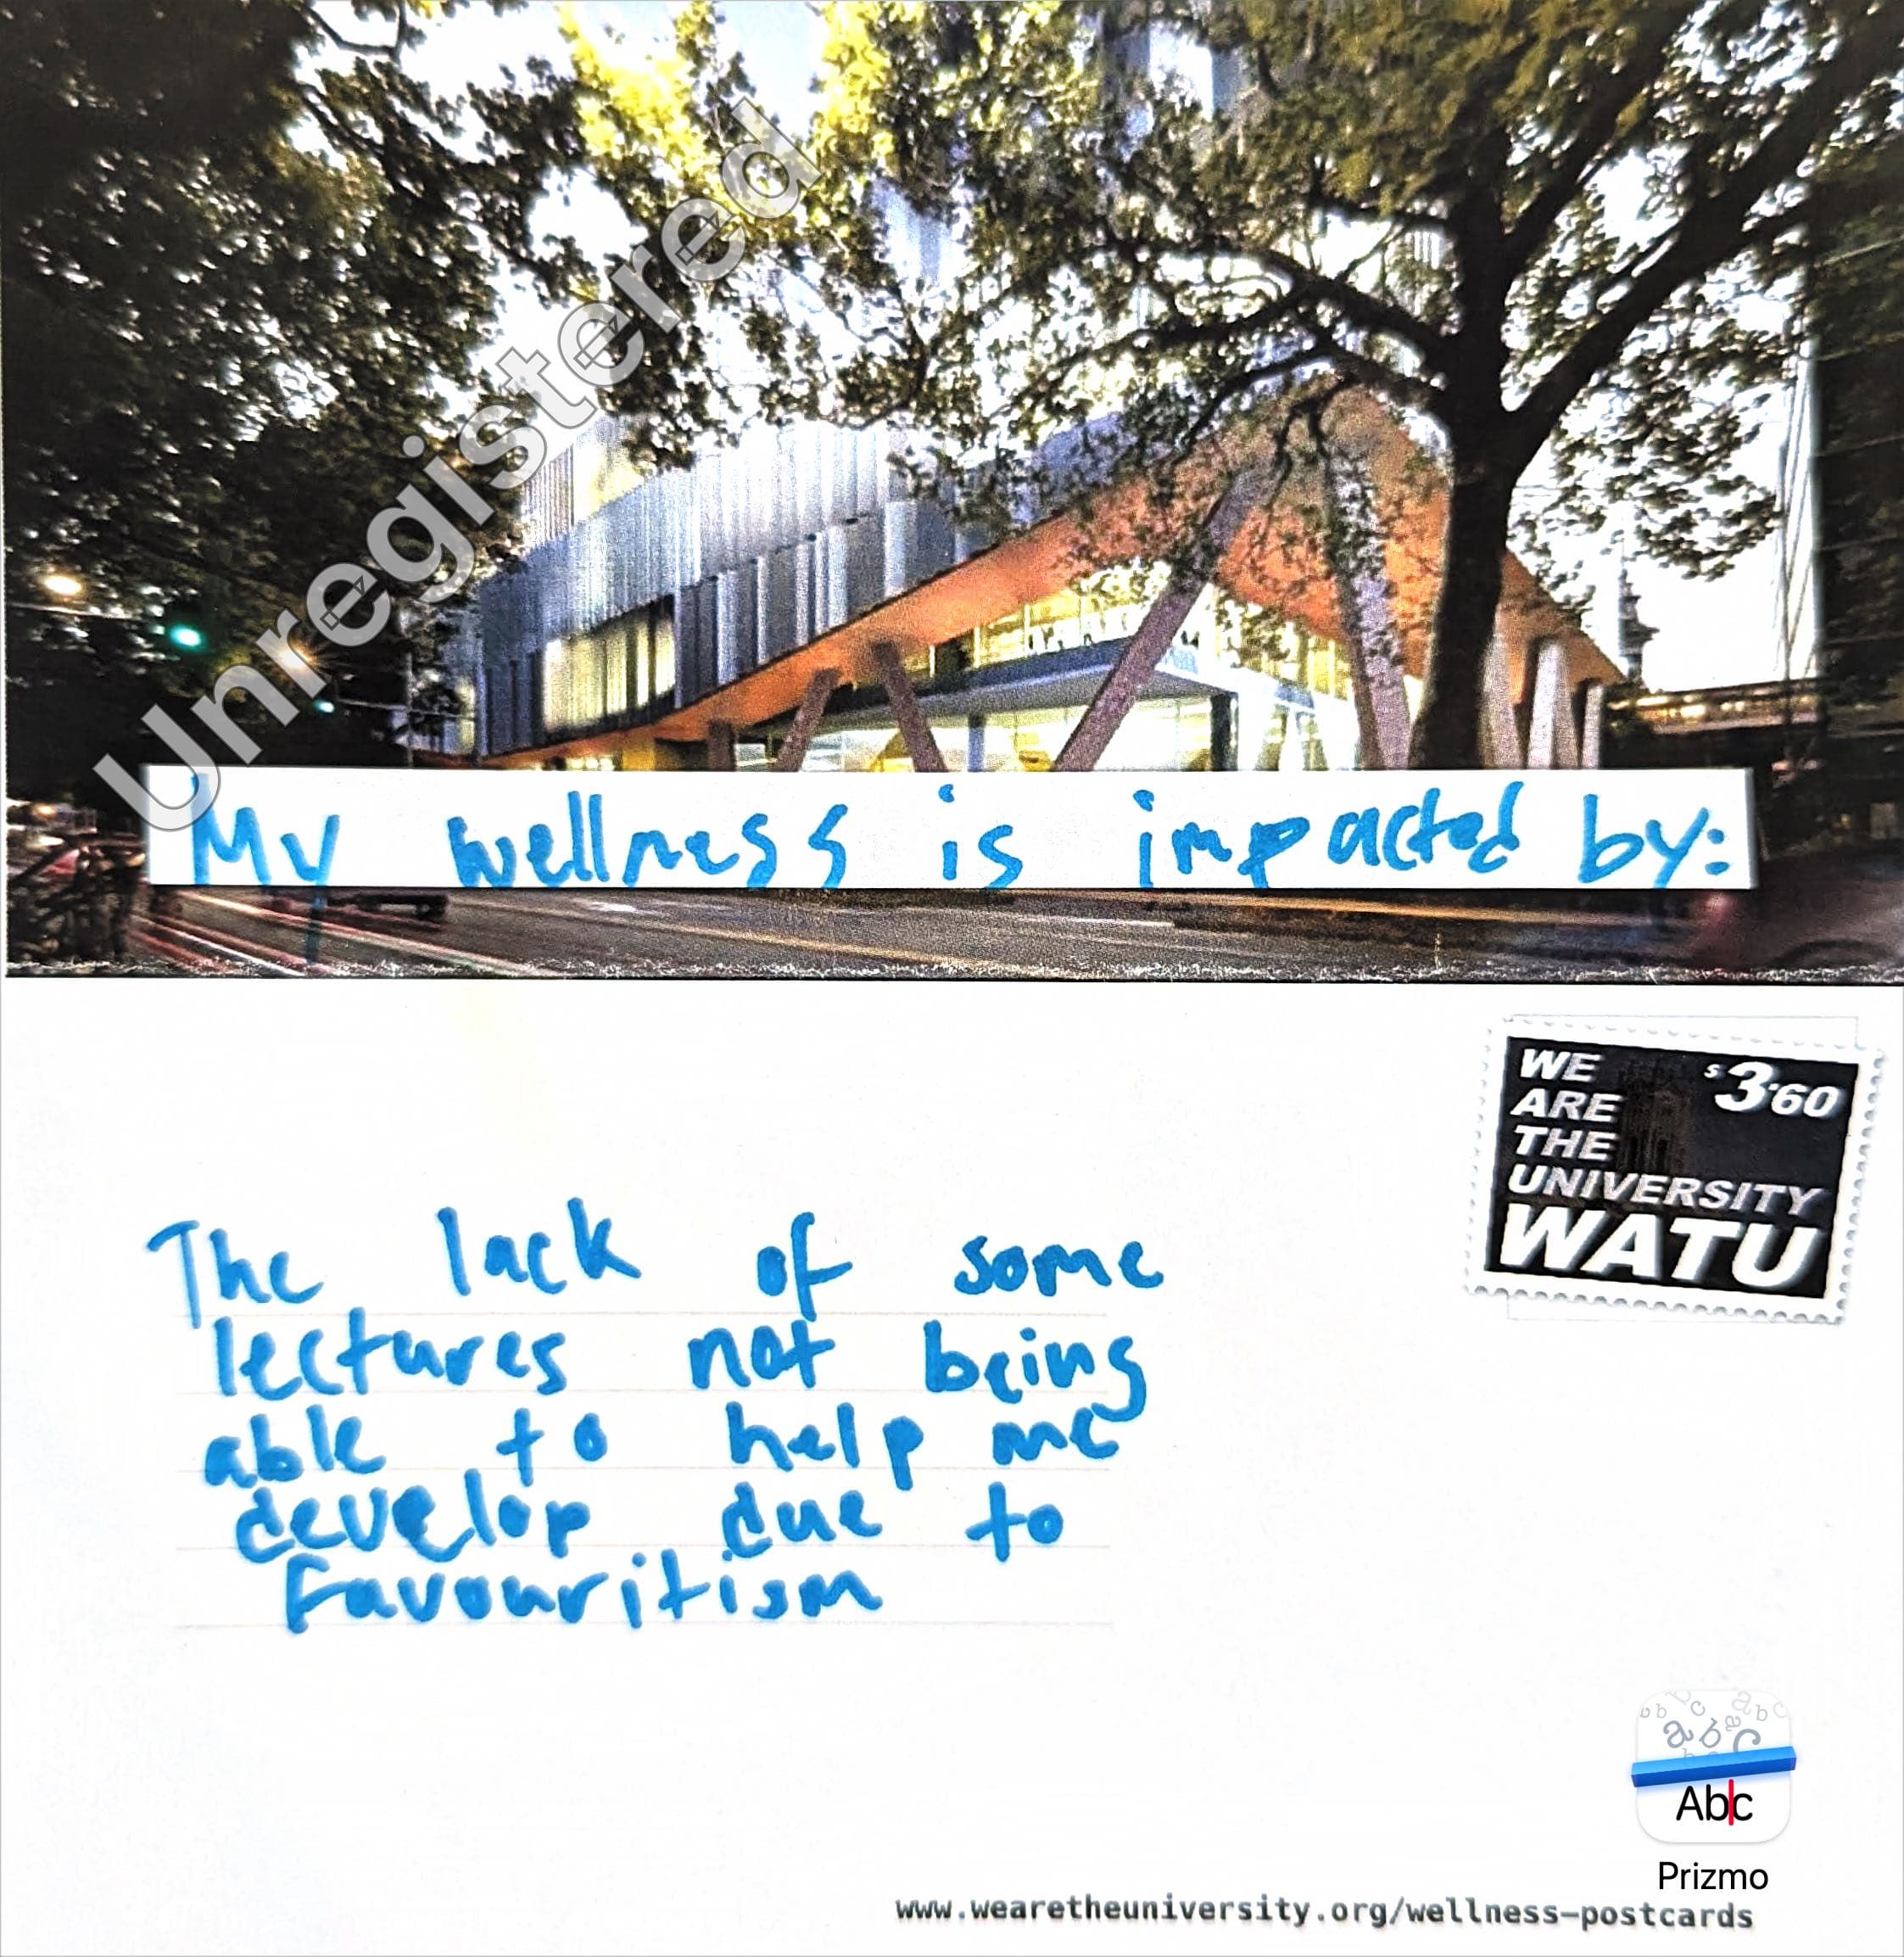 Unregistered
My wellness is impacted by:
WE
ARE
THE
UNIVERSITY
WATU
$3.60
The lack of some
lectures not being
able to help me
develop due to
Favouritism
Abc
Prizmo
www.wearetheuniversity.org/wellness-postcards